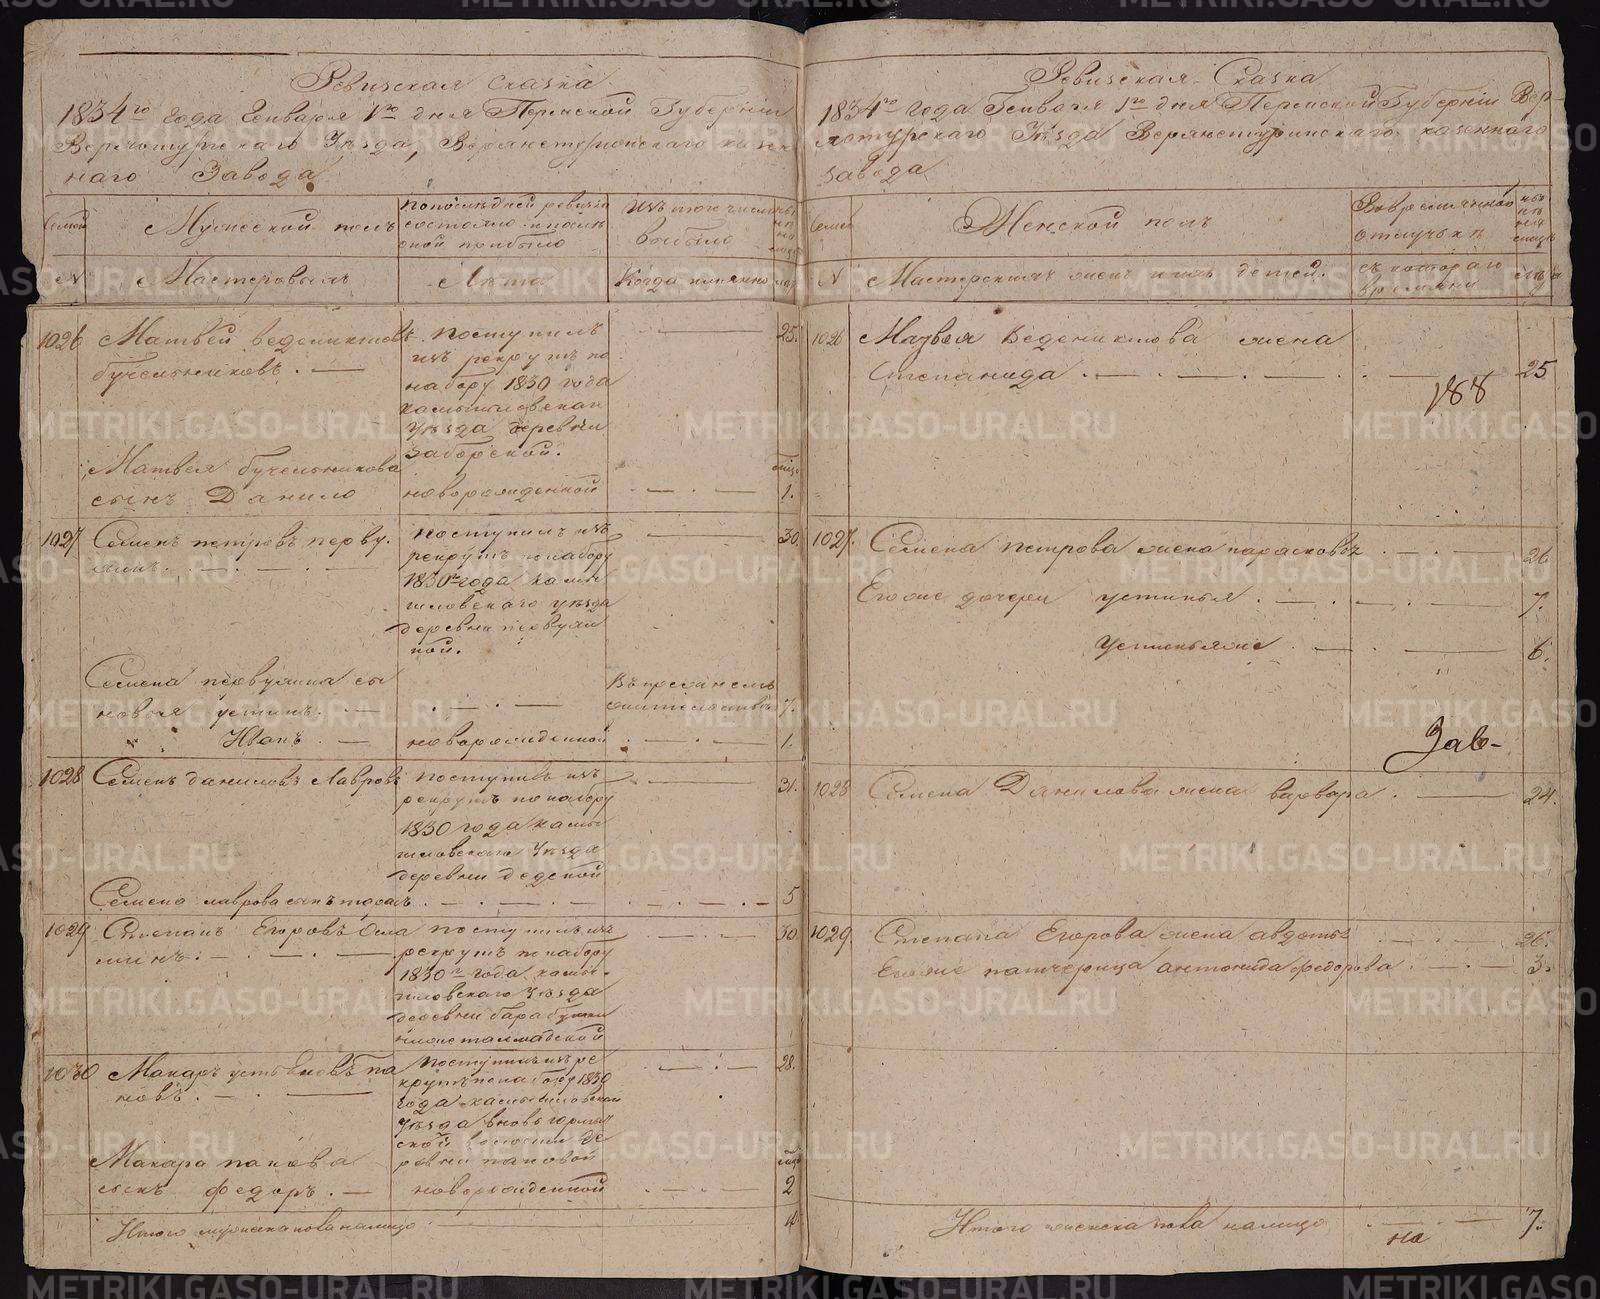 Ревизская сказка
1834го года Генваря 1го дня Пермской Губернии
Верхотурскаго Уѣзда, Верхнетуринскаго казен
наго Завода
Семей
Мужеской полъ
По последней ревизии
состояло и после
оной прибыло
Изъ того числа
выбыло
№
Мастеровыхъ
Лѣта
Когда именно
1026 Матвей Ведениктовъ
Бучельниковъ
поступилъ
изъ рекрутъ по
набору 1830 года
камышловскаго
Уѣзда деревни
Заборской.
25.
Матвея Бучельникова
сынъ Данило
новорожденной
1.
1027 Семенъ Петровъ Перву.
шинъ.
поступилъ изъ
рекрутъ по набору
1830го года камы
шловскаго уѣзда
деревни первуши
ной.
30.
Семена первушина сы
новья устинъ.
7.
Иванъ
новорожденной
1.
1028 Семенъ Даниловъ Лавровъ
поступилъ изъ
рекрутъ по набору
1830 года камы
шловскаго Уѣзда
деревни
31.
Семена лаврова сынъ
5
1029 Степанъ Егоровъ
поступилъ изъ
рекрутъ по набору
1830го года камы
шловскаго Уѣзда
деревни
30.
1030 Макаръ Па
новъ.
поступилъ изъ ре
крутъ по набору 1830
года камышловскаго
Уѣзда
волости де
ревни пановой
28.
Макара панова
сынъ федоръ.
новорожденной
2
Итого мужеска пола налицо
Ревизская Сказка
1834го года Генваря 1го дня Пермской Губернии Вер
хотурскаго Уѣзда Верхнетуринскаго казеннаго
завода
Семей
Женской полъ
Во временной
отлучкѣ
№
Мастерскихъ жены и ихъ детей.
съ котораго
времяни
1026 Матвея Ведениктова жена
Степанида
25
188
1027. Семена петрова жена парасковья
26.
Егоже дочери устинья
7.
устиньяже
6.
Зав-
1028 Семена Данилова жена варвара
24.
1029. Степана Егорова жена авдотья
26.
Егоже патчерица антонида федорова
3.
Итого женска пола налицо
7.
на
METRIKI.GASO-URAL.RU